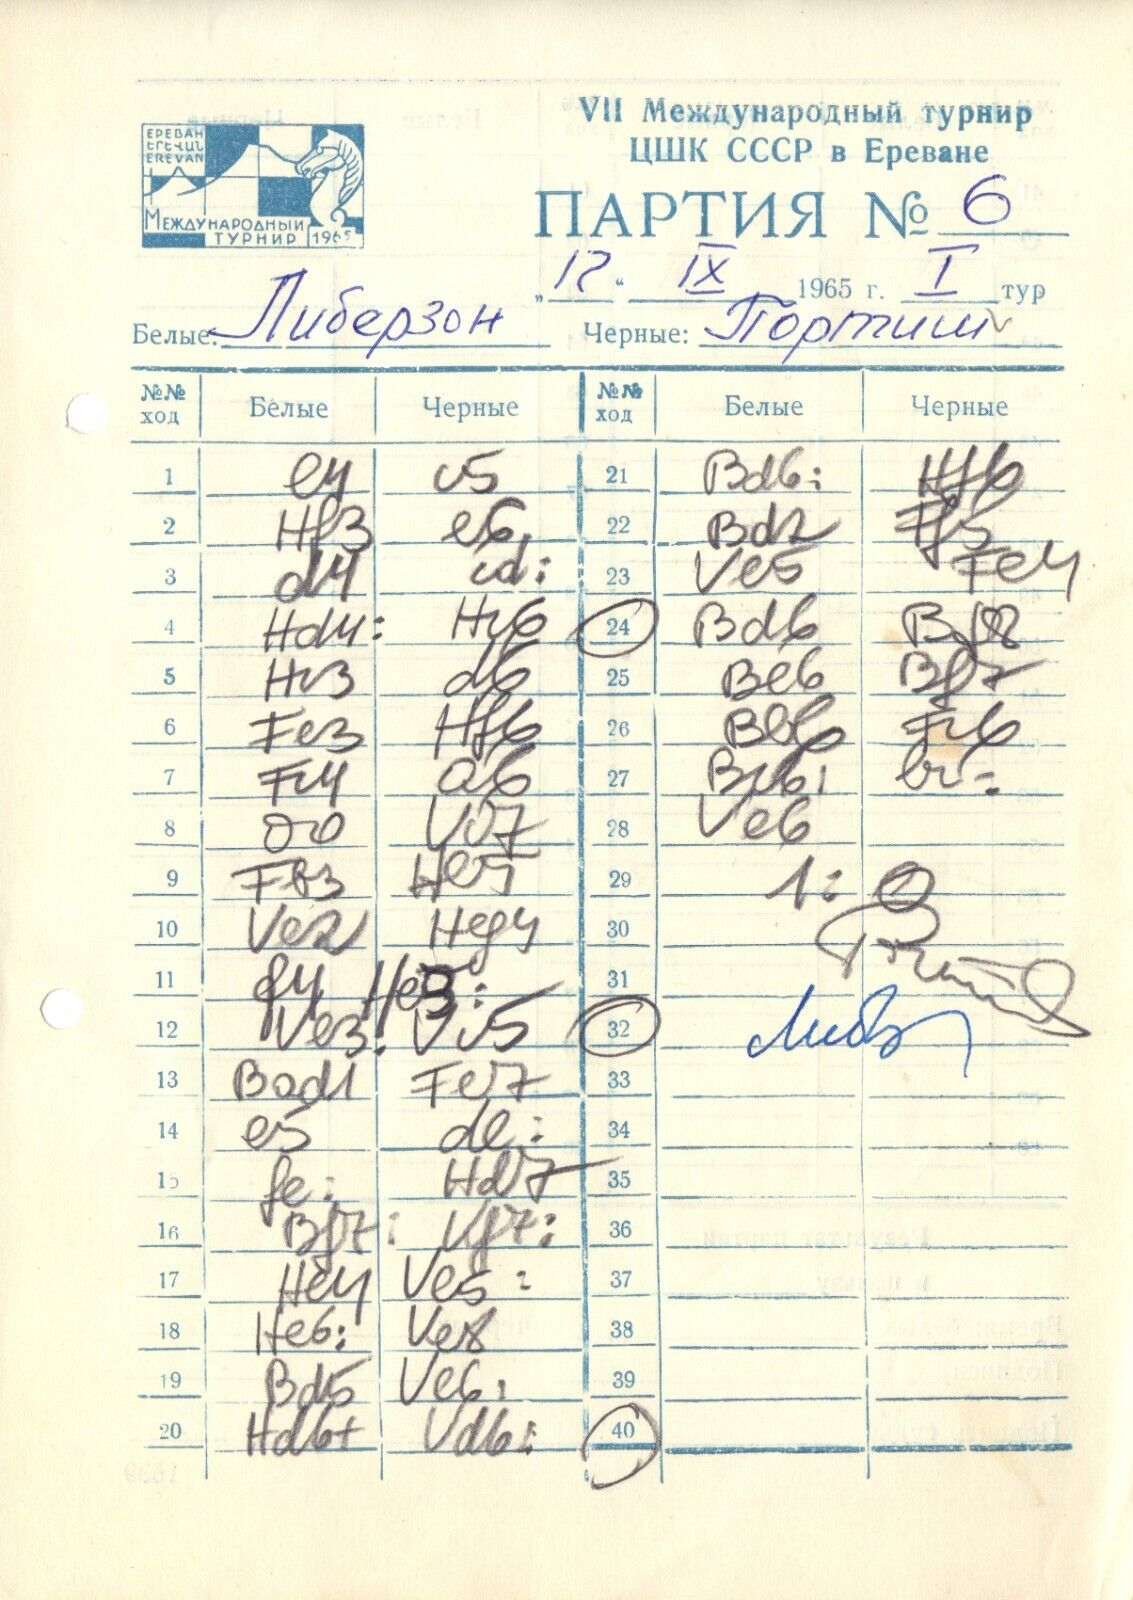 ЕРЕВАН
ԵՐԵՎԱՆ
EREVAN
МЕЖДУНАРОДНЫЙ
ТУРНИР 1965
VII Международный турнир
ЦШК СССР в Ереване
ПАРТИЯ № 6
„12“ IX 1965 г. I тур
Белые: Либерзон Черные: Портиш
№№ ход Белые Черные №№ ход Белые Черные
1 e4 c5 21 Bd6: Hf6
2 Hf3 e6 22 Bd2 Ff5
3 d4 cd: 23 Ve5 Fe4
4 Hd4: Hc6 24 Bd6 Bf8
5 Hc3 d6 25 Be6 Bf7
6 Fe3 Hf6 26 Bb6 Fc6
7 Fc4 a6 27 Bc6: bc:
8 oo Vc7 28 Ve6
9 Fb3 He5 29 1:0
10 Ve2 Heg4 30
11 f4 He3: 31
12 Ve3: Vc5 32
13 Bad1 Fe7 33
14 e5 de: 34
15 fe: Hd7 35
16 Bf7: Kf7: 36
17 He4 Ve5: 37
18 He6: Ve8 38
19 Bd5 Ve6: 39
20 Hd6+ Vd6: 40